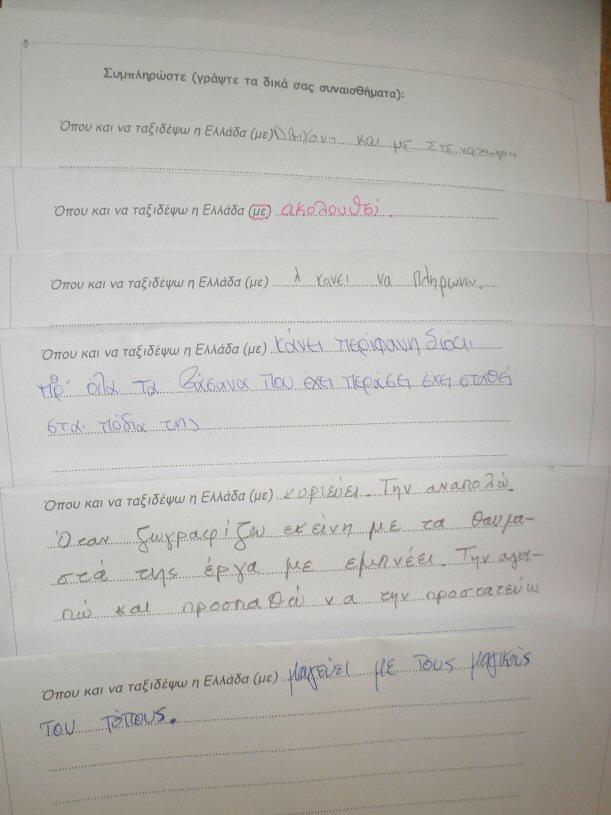 Συμπληρώστε (γράψτε τα δικά σας συναισθήματα):
Όπου και να ταξιδέψω η Ελλάδα (με) και με στεναχωρη
Όπου και να ταξιδέψω η Ελλάδα (με) ακολουθεί.
Όπου και να ταξιδέψω η Ελλάδα (με) κανει να πληρωνω.
Όπου και να ταξιδέψω η Ελλάδα (με) κάνει περίφανη διότι
παρ' όλα τα βάσανα που έχει περάσει έχει σταθεί
στα πόδια της
Όπου και να ταξιδέψω η Ελλάδα (με) κυριεύει. Την αναπολώ.
Όταν ζωγραφίζω εκείνη με τα θαυμα-
στά της έργα με εμπνέει. Την αγα-
πώ και προσπαθώ να την προστατεύω
Όπου και να ταξιδέψω η Ελλάδα (με) μαγεύει με τους μαγικούς
του τόπους.